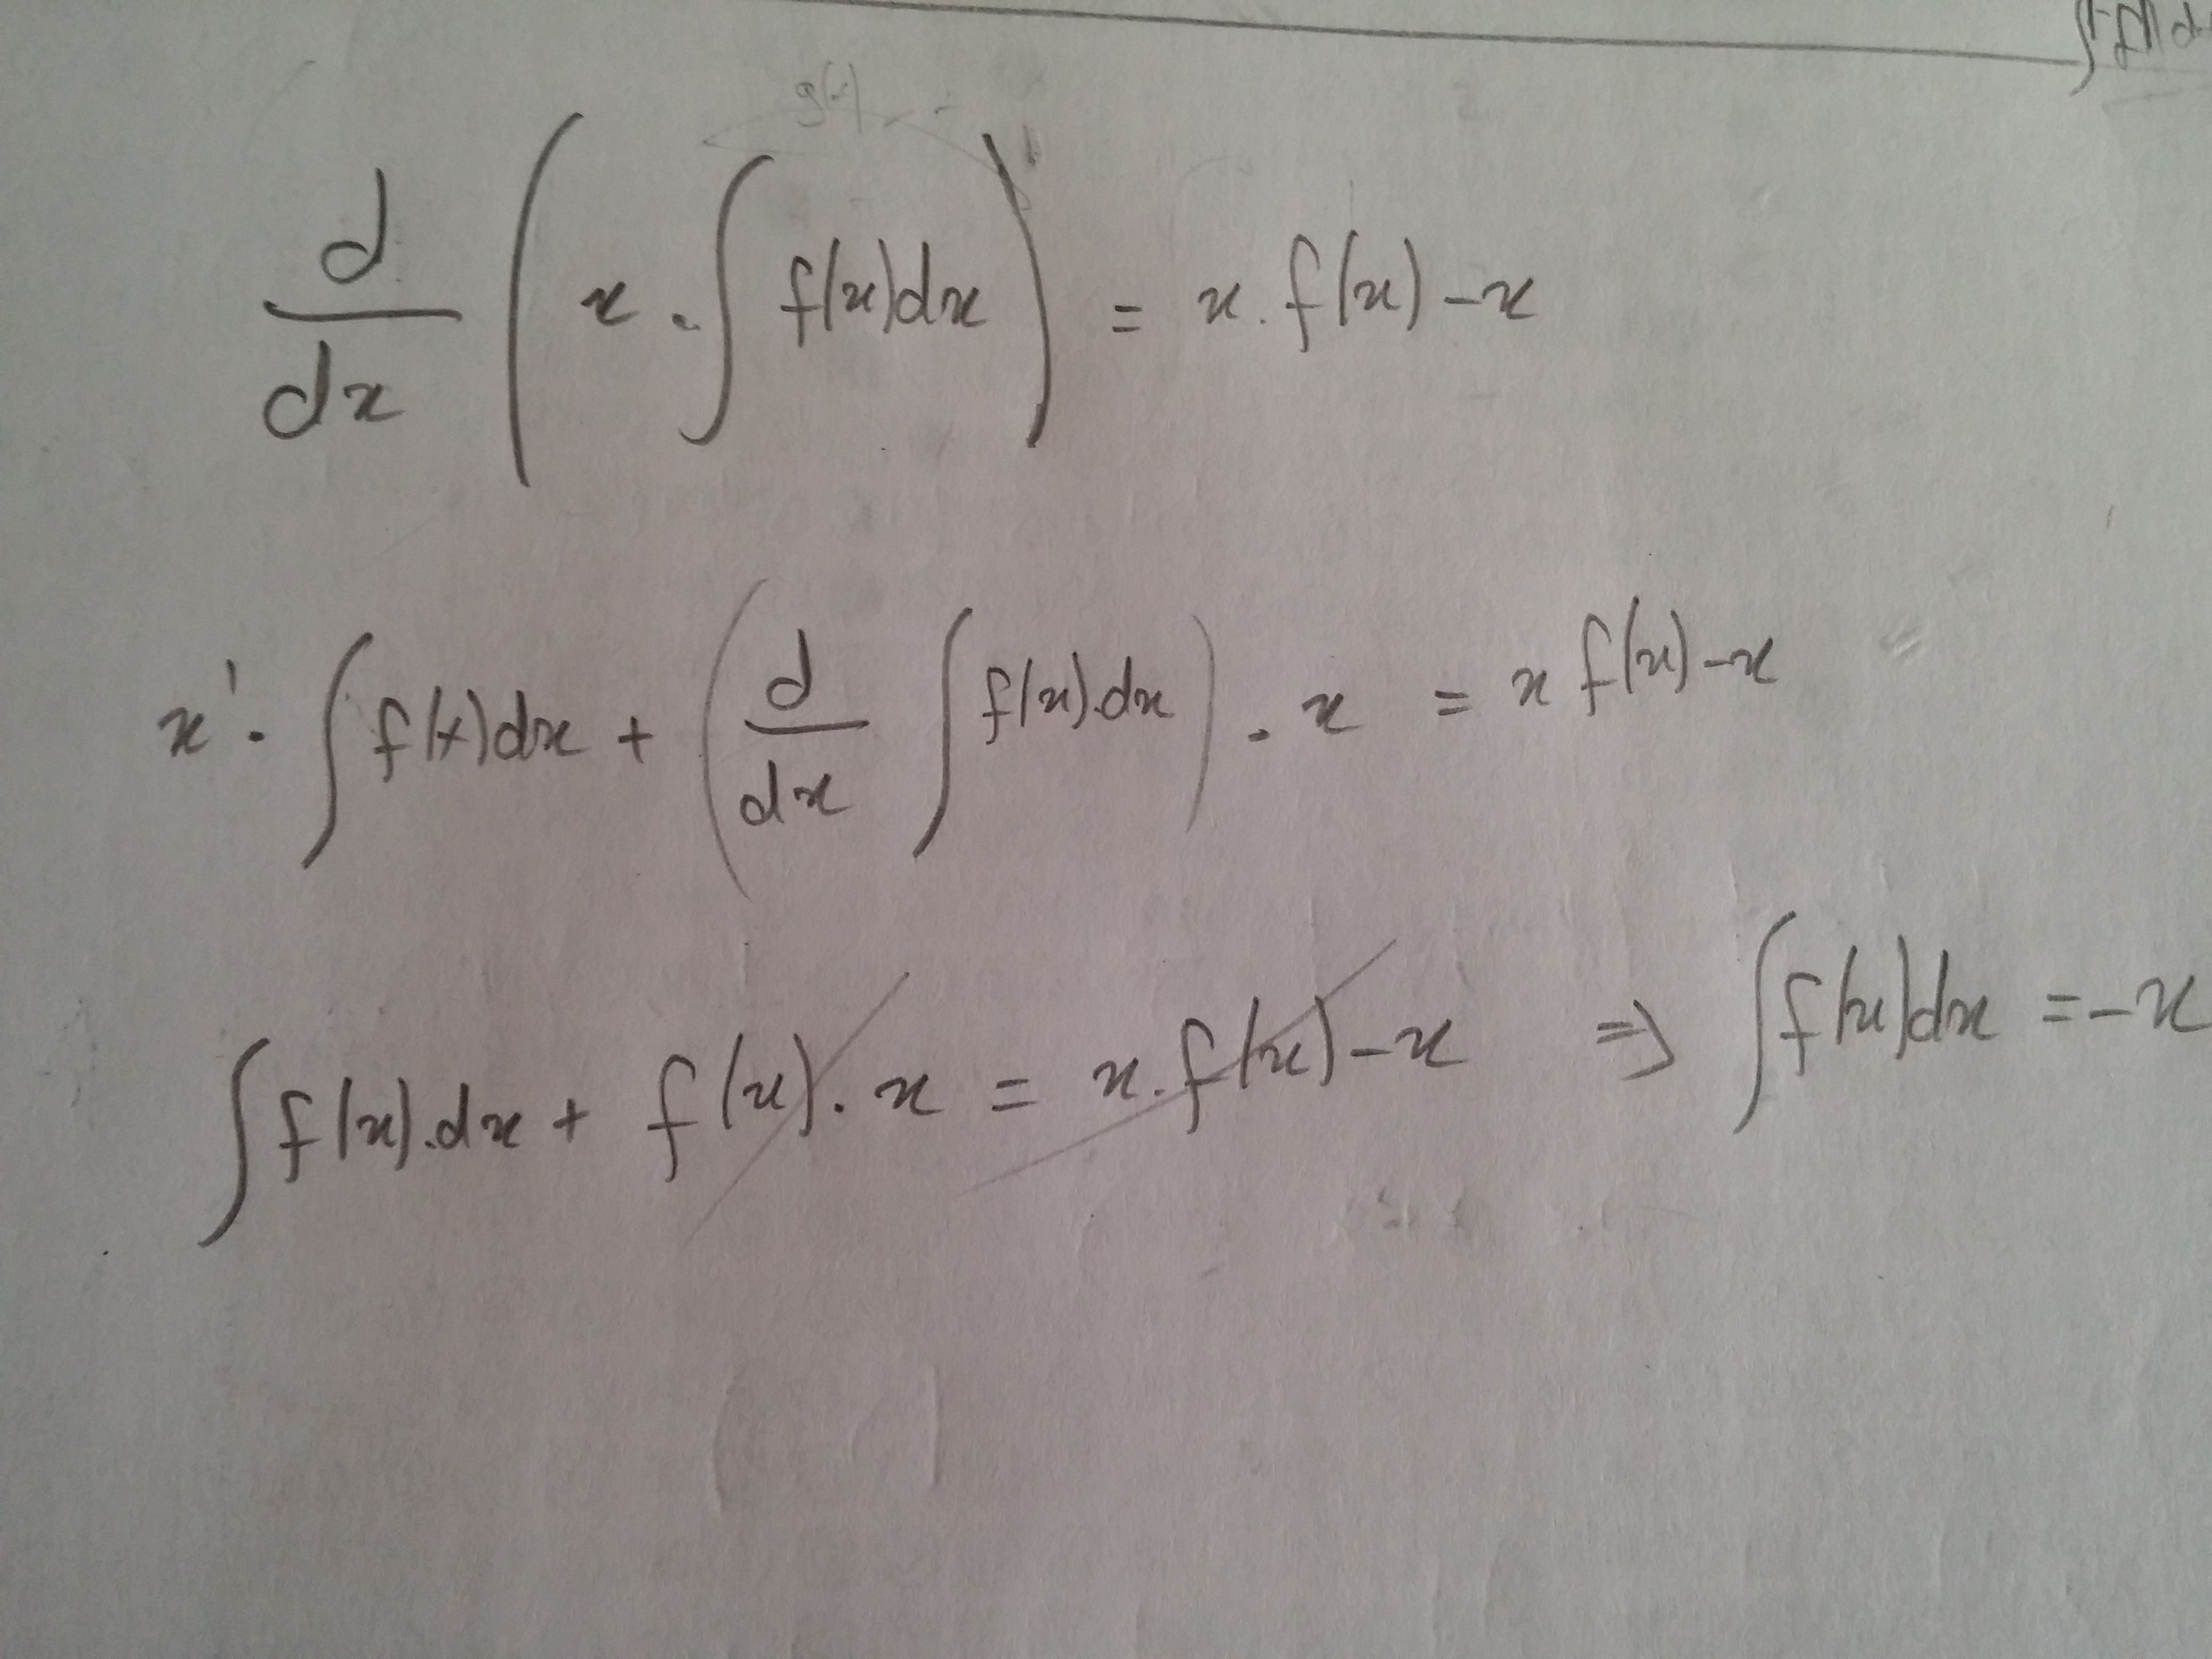 d/dx (x . ∫ f(x)dx) = x . f(x) - x
x' . ∫ f(x)dx + (d/dx ∫ f(x).dx) . x = x f(x) - x
∫ f(x).dx + f(x) . x = x . f(x) - x ⇒ ∫ f(x)dx = -x